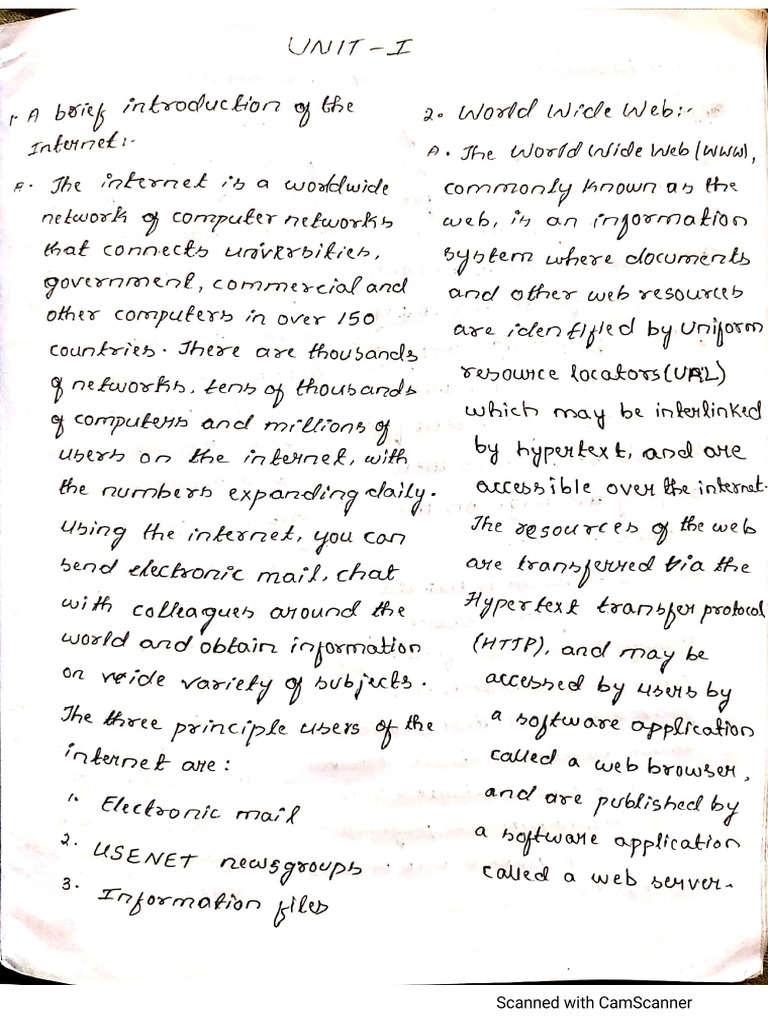 UNIT-I
1. A brief introduction of the
Internet:-
A. The internet is a worldwide
network of computer networks
that connects universities,
government, commercial and
other computers in over 150
countries. There are thousands
of networks, tens of thousands
of computers and millions of
users on the internet, with
the numbers expanding daily.
using the internet, you can
send electronic mail, chat
with colleagues around the
world and obtain information
on wide variety of subjects.
The three principle users of the
internet are:
1. Electronic mail
2. USENET newsgroups
3. Information files
2. World Wide Web:-
A. The World Wide Web (WWW),
commonly known as the
web, is an information
system where documents
and other web resources
are identified by Uniform
resource locators (URL)
which may be interlinked
by hypertext, and are
accessible over the internet.
The resources of the web
are transferred via the
Hypertext transfer protocol
(HTTP), and may be
accessed by users by
a software application
called a web browser,
and are published by
a software application
called a web server.
Scanned with CamScanner